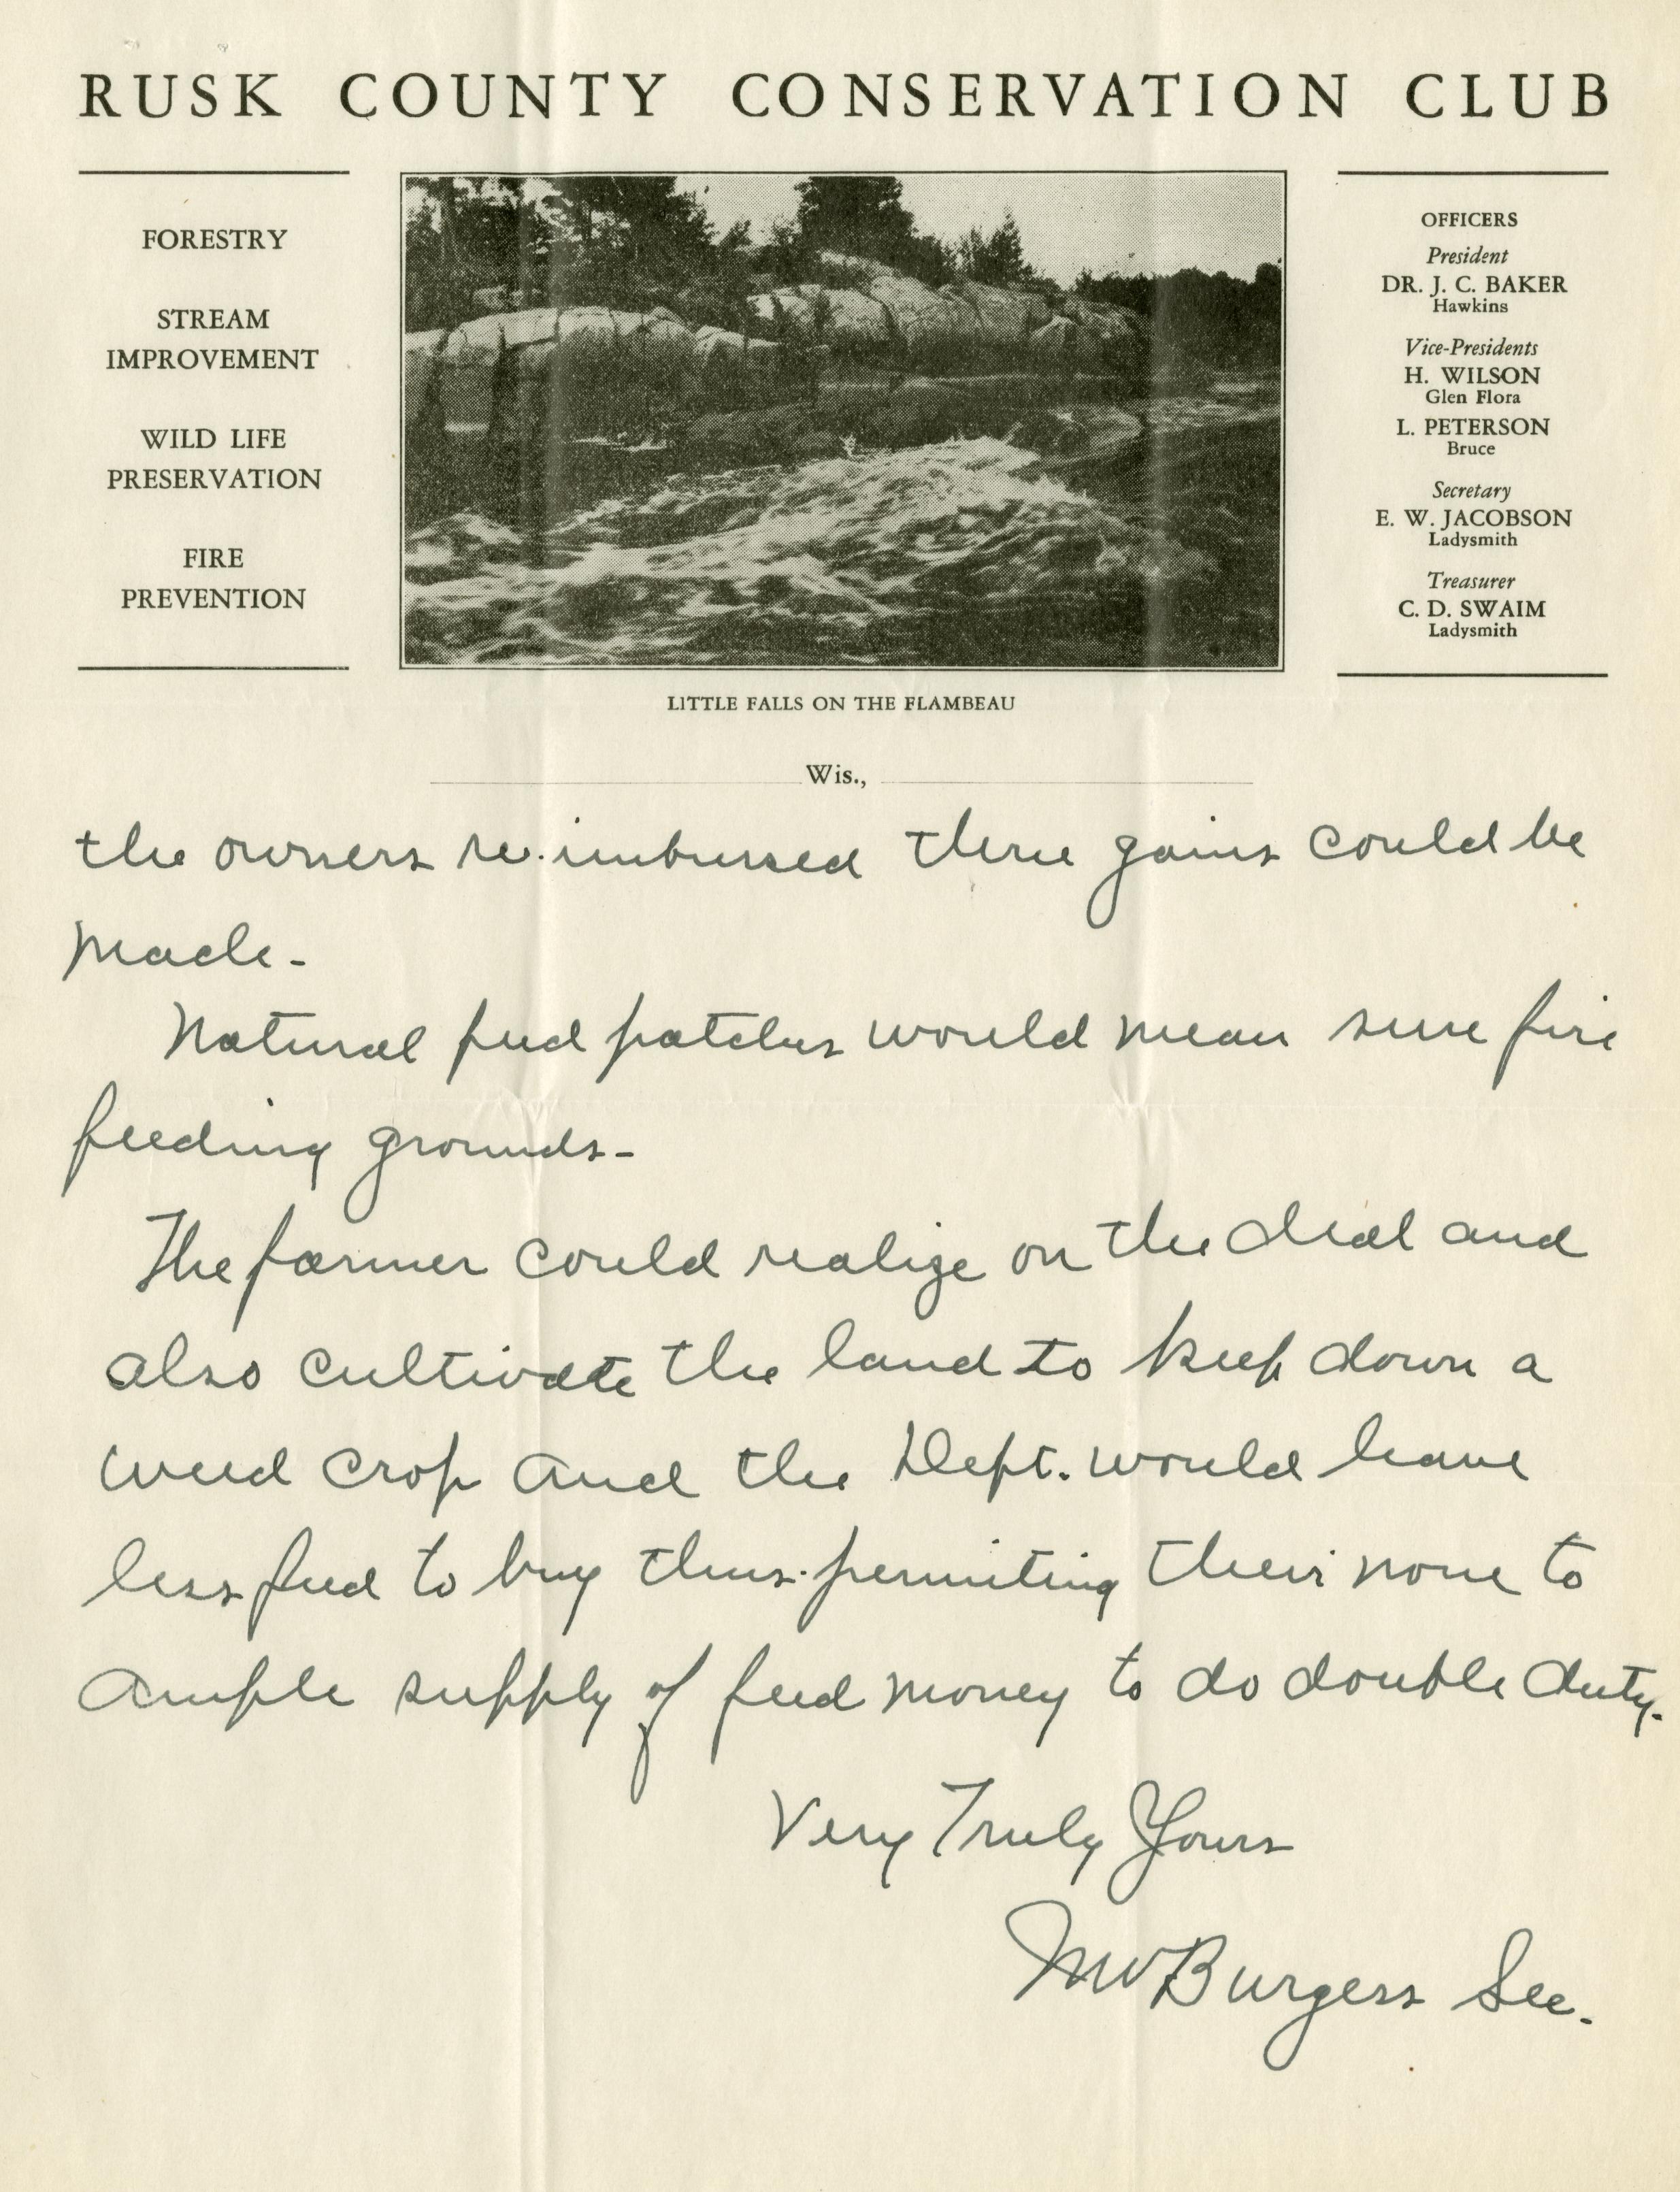 RUSK COUNTY CONSERVATION CLUB
FORESTRY
STREAM
IMPROVEMENT
WILD LIFE
PRESERVATION
FIRE
PREVENTION
OFFICERS
President
DR. J. C. BAKER
Hawkins
Vice-Presidents
H. WILSON
Glen Flora
L. PETERSON
Bruce
Secretary
E. W. JACOBSON
Ladysmith
Treasurer
C. D. SWAIM
Ladysmith
LITTLE FALLS ON THE FLAMBEAU
Wis.,
the owners re-imbursed three gains could be
made-
Natural feed patches would mean sure fire
feeding grounds-
The farmer could realize on the deal and
also cultivate the land to keep down a
weed crop and the Dept. would have
less feed to buy thus permiting their none to
ample supply of feed money to do double duty.
Very Truly Yours
MWBurgess Sec.